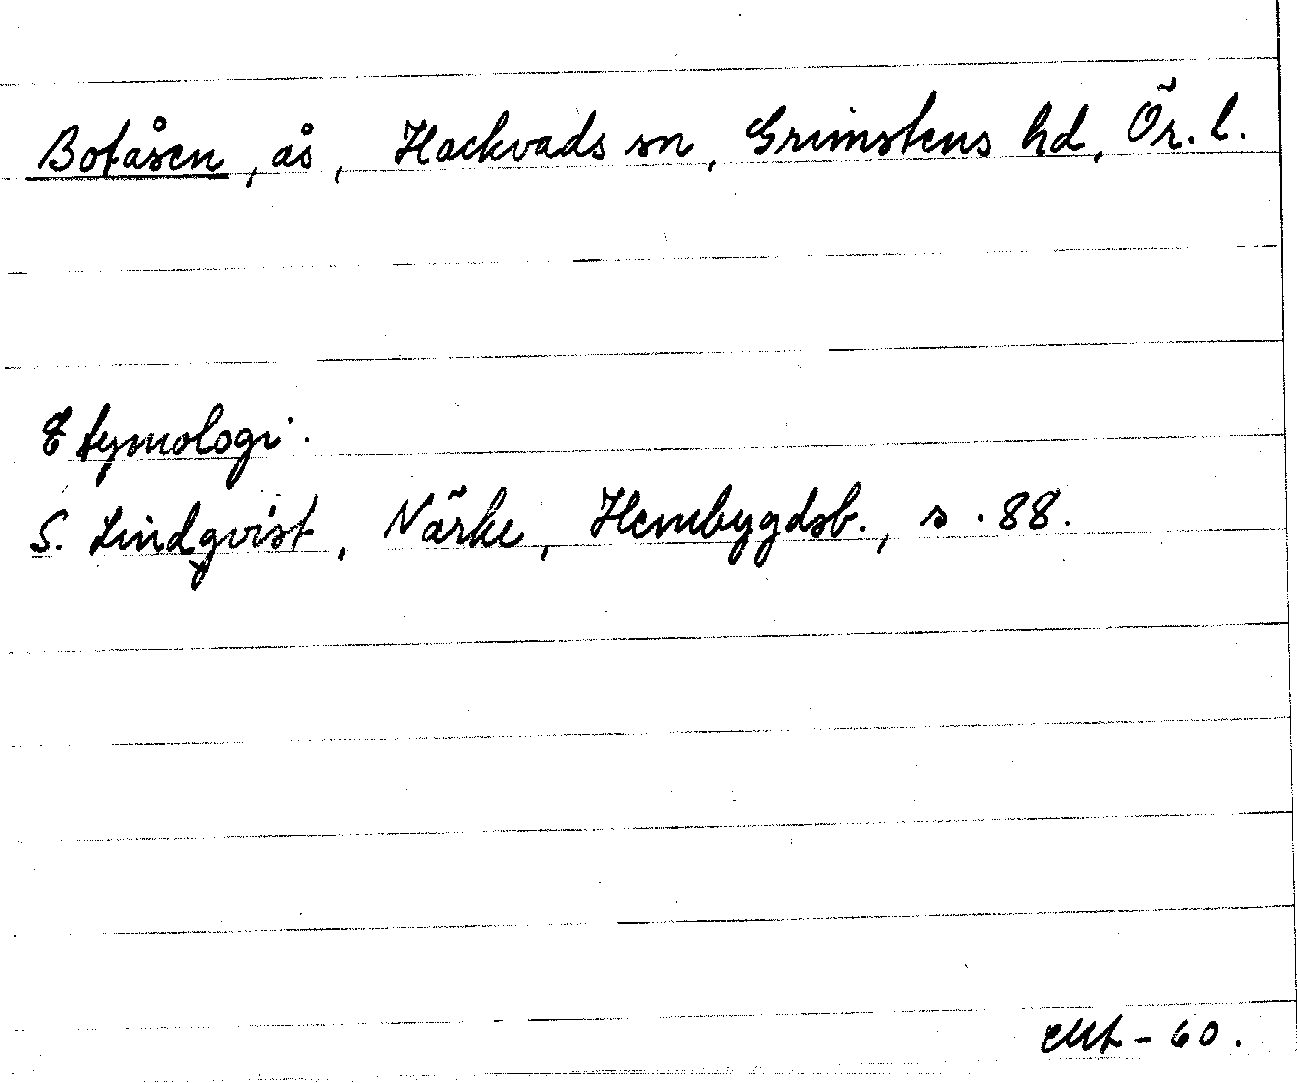 Botåsen, ås, Hackvads sn, Grimstens hd, Ör. l.
Etymologi.
S. Lindqvist, Närke, Hembygdsb., s. 88.
-60.